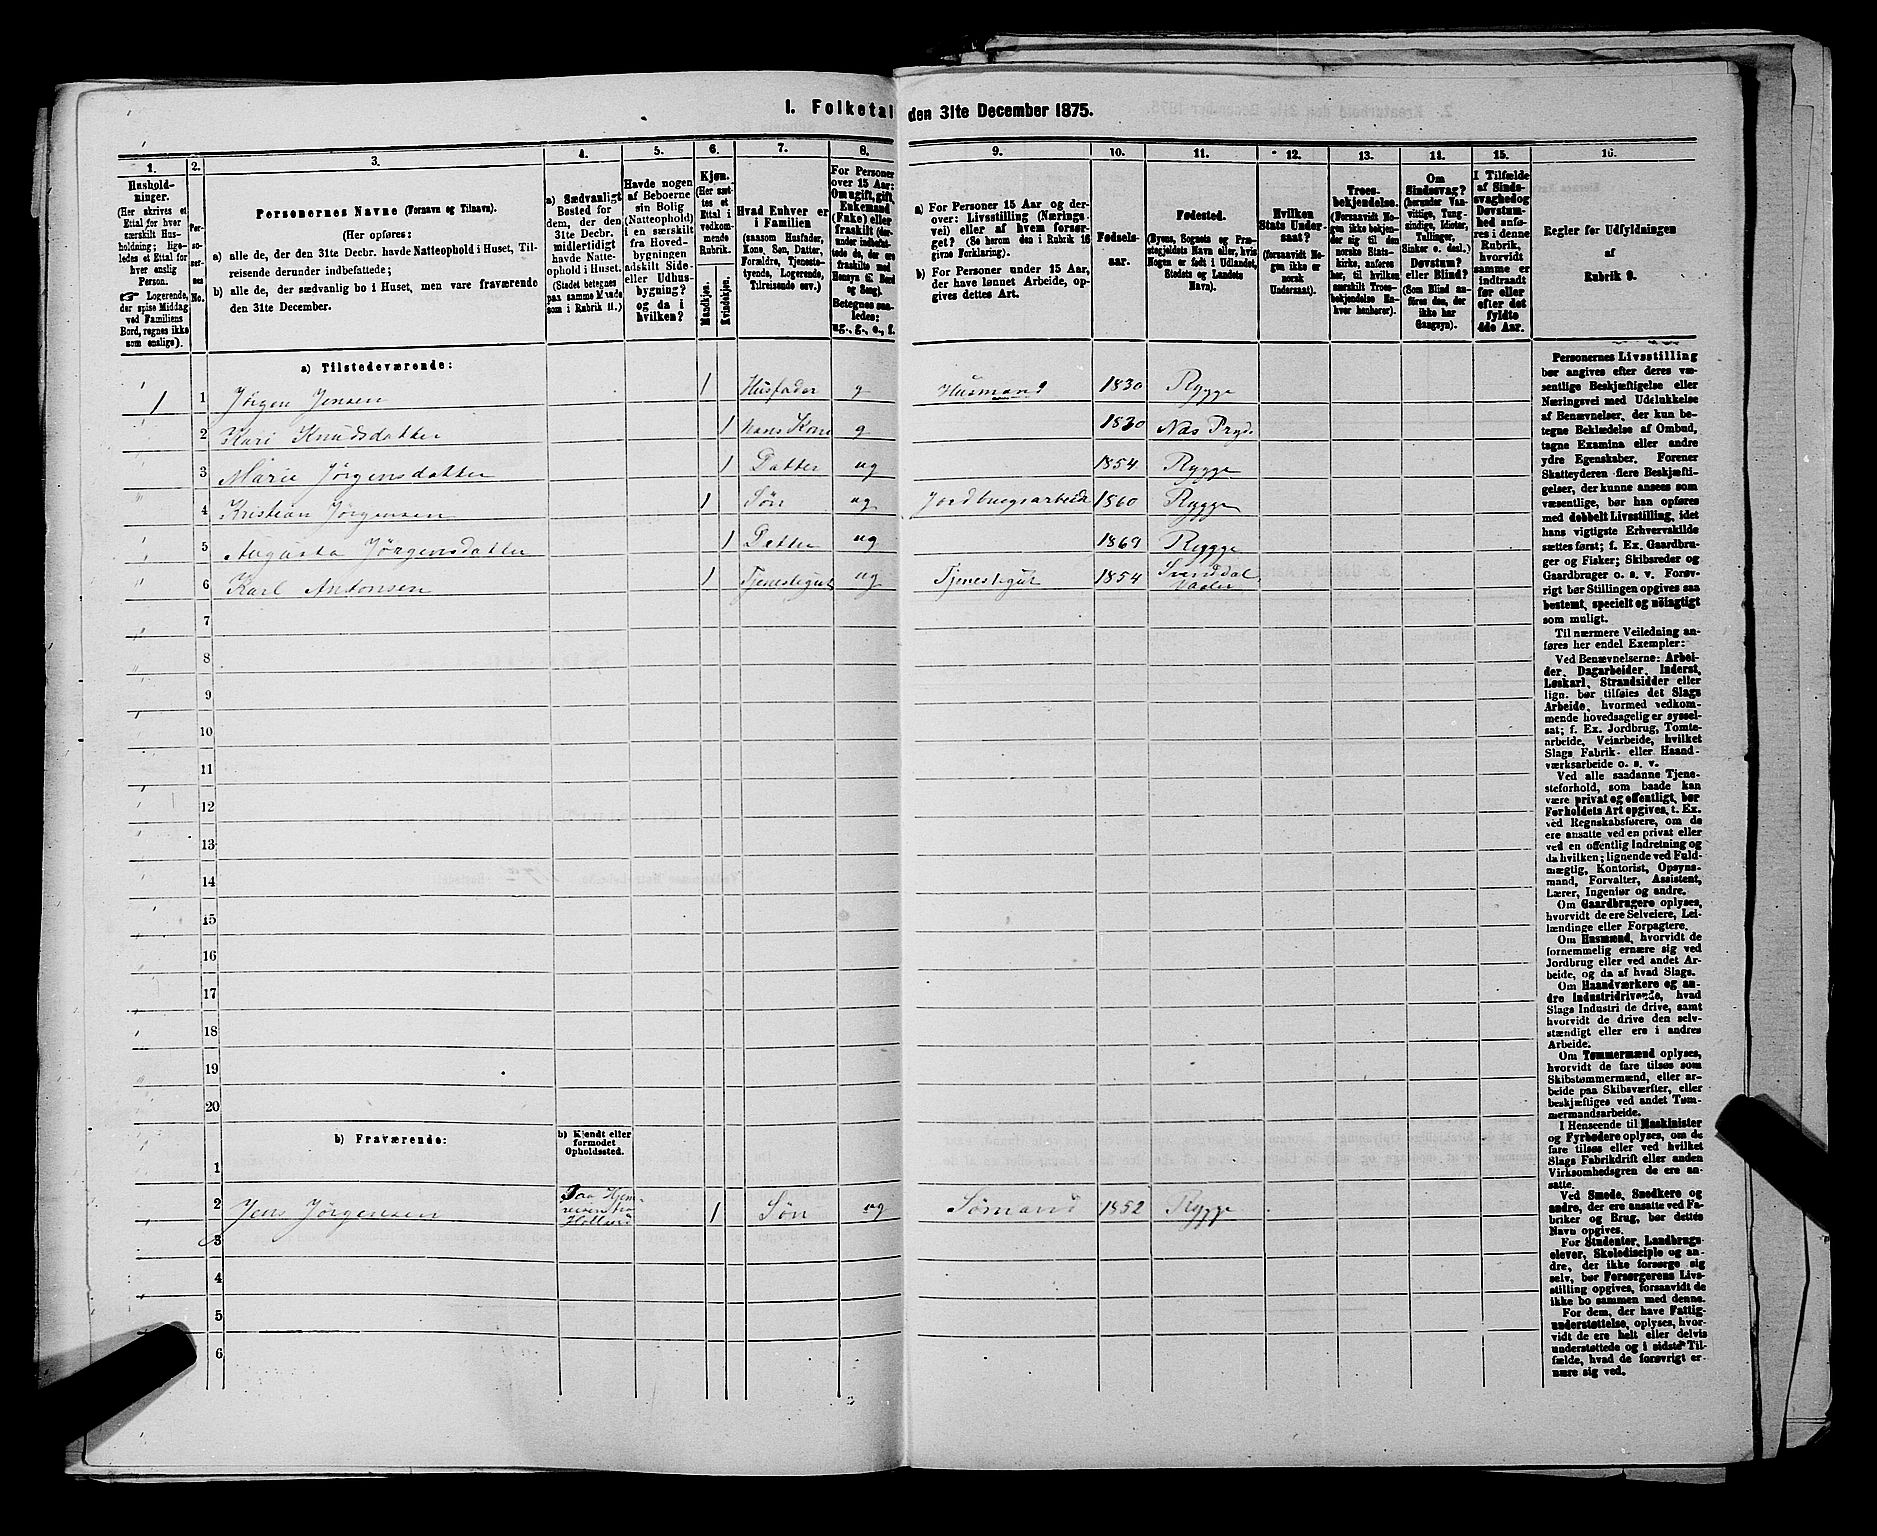 I. Folketal den 31te December 1875.
1. 2. 3. 4. 5. 6. 7. 8. 9. 10. 11. 12. 13. 14. 15. 16.
Hushold-
ninger.
(Her skrives et
Ettal for hver
særskilt Hus-
holdning; lige-
ledes et Ettal for
hver enslig
Person.
☞ Logerende,
der spise Middag
ved Familiens
Bord, regnes ikke
som enslige).
Per-
so-
ner-
nes
No.
Personernes Navne (Fornavn og Tilnavn).
(Her opføres:
a) alle de, der den 31te Decbr. havde Natteophold i Huset, Til-
reisende derunder indbefattede;
b) alle de, der sædvanlig bo i Huset, men vare fraværende
den 31te December.
a) Sædvanligt
Bosted for
dem, der den
31te Decbr.
midlertidigt
havde Natte-
ophold i Huset.
(Stedet betegnes
paa samme Maade
som i Rubrik 11.)
Havde nogen
af Beboerne
sin Bolig
(Natteophold)
i en særskilt
fra Hoved-
bygningen
adskilt Side-
eller Udhus-
bygning?
og da i
hvilken?
Kjøn.
(Her sæt-
tes et
Ettal i
vedkom-
mende
Rubrik.
Mandkjøn.
Kvindekjøn.
Hvad Enhver er
i Familien
(saasom Husfader,
Kone, Søn, Datter,
Forældre, Tjeneste-
tyende, Logerende,
Tilreisende osv.)
For Personer
over 15 Aar:
Om ugift, gift,
Enkemand
(Enke) eller
fraskilt (der-
under indbefat-
tede de, der ere
fraskilte med
Hensyn til Bord
og Seng).
Betegnes saa-
ledes:
ug., g., e., f.
a) For Personer 15 Aar og der-
over: Livsstilling (Nærings-
vei) eller af hvem forsør-
get? (Se herom den i Rubrik 16
givne Forklaring).
b) For Personer under 15 Aar,
der have lønnet Arbeide, op-
gives dettes Art.
Fødsels-
aar.
Fødested.
(Byens, Sognets og Præ-
stegjeldets Navn eller, hvis
Nogen er født i Udlandet,
Stedets og Landets
Navn).
Hvilken
Stats Under-
saat?
(forsaavidt No-
gen ikke er
norsk
Undersaat).
Troes-
bekjendelse.
(Forsaavidt No-
gen ikke bekjen-
der sig til den
norske Stats-
kirke, anføres
her, til hvilken
særskilt Troes-
bekjendelse En-
hver henhører).
Om
Sindssvag?
(herunder Van-
vittige, Tung-
sindige, Idioter,
Tullinger,
Sinker o. desl.)
Døvstum?
eller Blind?
(Som Blind an-
føres den, der
ikke har
Gangsyn).
I Tilfælde
af Sinds-
svaghed og
Døvstum-
hed anfø-
res i denne
Rubrik,
hvorvidt
samme er
indtraadt
før eller
efter det
fyldte
4de Aar.
Regler for Udfyldningen
af
Rubrik 9.
a) Tilstedeværende:
1 1 Jørgen Jensen 1 Husfader g Husmand 1830 Rygge
2 Kari Knudsdatter 1 hans Kone g
3 Marie Jørgensdatter 1 Datter ug 1854 Rygge
4 Kristian Jørgensen 1 Søn ug Jordbrugsarbeide 1860 Rygge
5 Augusta Jørgensdatter 1 Datter ug 1869 Rygge
6 Karl Antonsen 1 Tjenestegut ug Tjenestegut 1854
7
8
9
10
11
12
13
14
15
16
17
18
19
20
b) Fraværende:
b) Kjendt eller
formodet
Opholdssted.
1
2 Jens Jørgensen Paa Hjem-
reisen fra
Holland 1 Søn ug Sømand 1852 Rygge
3
4
5
6
Personernes Livsstilling
bør angives efter deres væ-
sentlige Beskjæftigelse eller
Næringsvei med Udelukkelse
af Benævnelser, der kun be-
tegne Beklædelse af Ombud,
tagne Examina eller andre
ydre Egenskaber. Forener
Skatteyderen flere Beskjæfti-
gelser, der kunne ansees som
væsentlige, bør han opføres
med dobbelt Livsstilling, idet
hans vigtigste Erhvervskilde
sættes først; f. Ex. Gaardbru-
ger og Fisker; Skibsreder og
Gaardbruger o. s. v. Forøv-
rigt bør Stillingen opgives saa
bestemt, specielt og nöiagtigt
som muligt.
Til nærmere Veiledning an-
føres her endel Exempler:
Ved Benævnelserne: Arbei-
der, Dagarbeider, Inderst,
Løskarl, Strandsidder eller
lign. bør tilføies det Slags
Arbeide, hvormed vedkom-
mende hovedsagelig er syssel-
sat; f. Ex. Jordbrug, Tomte-
arbeide, Veiarbeide, hvilket
Slags Fabrik- eller Haand-
værksarbeide o. s. v.
Ved alle saadanne Tjene-
steforhold, som baade kan
være privat og offentligt, bør
Forholdets Art opgives, t. Ex.
ved Regnskabsførere, om de
ere ansatte ved en privat eller
ved en offentlig Indretning og
da hvilken; lignende ved Fuld-
mægtig, Kontorist, Opsyns-
mand, Forvalter, Assistent,
Lærer, Ingeniør og andre.
Om Gaardbrugere oplyses,
hvorvidt de ere Selveiere, Lei-
lændinge eller Forpagtere.
Om Husmænd, hvorvidt de
fornemmelig ernære sig ved
Jordbrug eller ved andet Ar-
beide, og da af hvad Slags.
Om Haandværkere og an-
dre Industridrivende, hvad
Slags Industri de drive, samt
hvorvidt de drive den selv-
stændigt eller ere i andres
Arbeide.
Om Tømmermænd oplyses,
hvorvidt de fare tilsøs som
Skibstømmermænd, eller ar-
beide paa Skibsværfter, eller
beskjæftiges ved andet Tøm-
mermandsarbeide.
I Henseende til Maskinister
og Fyrbødere oplyses, om de
fare tilsøs eller ved hvilket
Slags Fabrikdrift eller anden
Virksomhedsgren de ere an-
satte.
Ved Smede, Snedkere og
andre, der ere ansatte ved Fa-
briker og Brug, bør dettes
Navn opgives.
For Studenter, Landbrugs-
elever, Skoledisciple og an-
dre, der ikke forsørge sig
selv, bør Forsørgerens Livs-
stilling opgives, forsaavidt de
ikke bo sammen med denne.
For dem, der have Fattig-
understøttelse, oplyses, hvor-
vidt de ere helt eller delvis
understøttede og i sidste Til-
fælde, hvad de forøvrigt er-
nære sig ved.